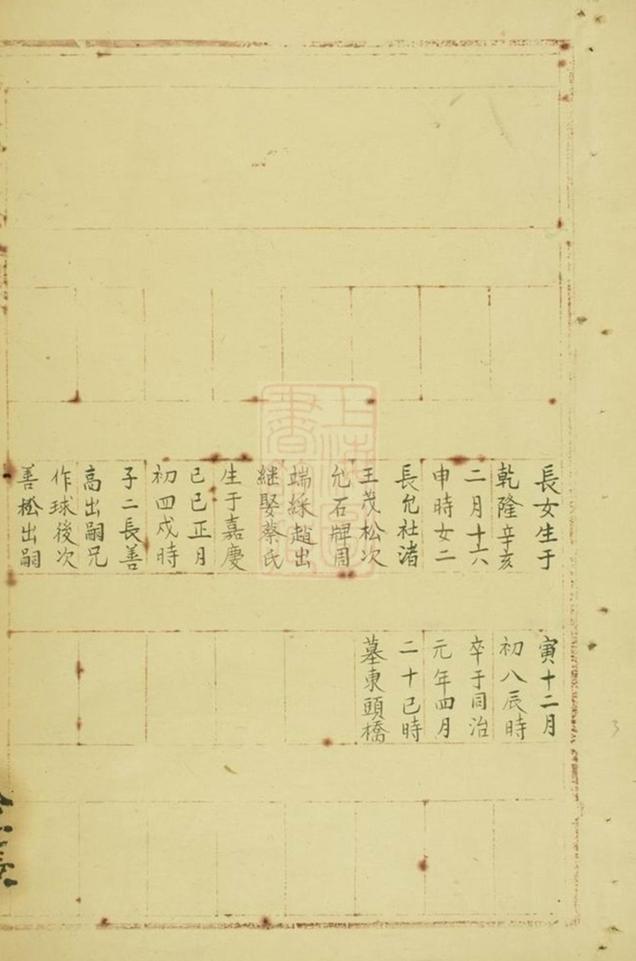 長女生于
乾隆辛亥
二月十六
申時女二
長允社渚
王茂松次
允石牌周
端綵趙出
継娶蔡氏
生于嘉慶
己巳正月
初四戌時
子二長善
高出嗣兄
作球後次
善松出嗣
寅十二月
初八辰時
卒于同治
元年四月
二十巳時
墓東頭橋